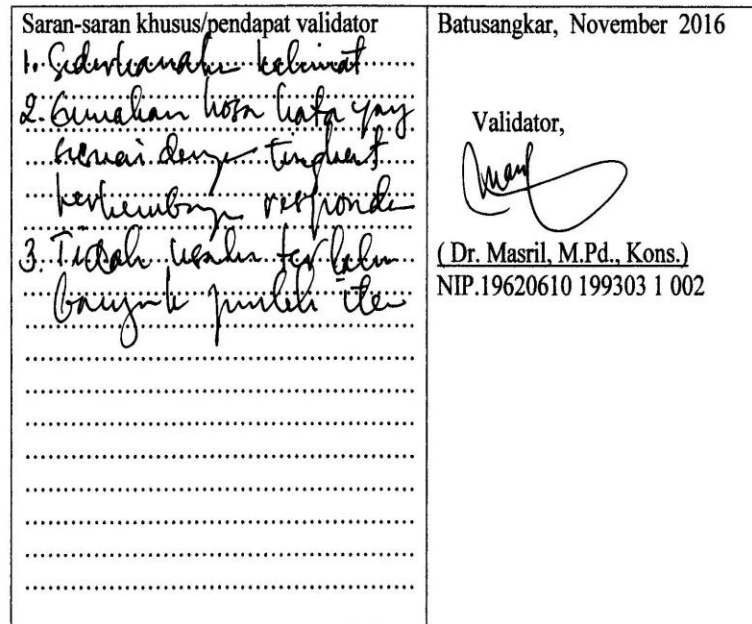 Saran-saran khusus/pendapat validator
1. Sederhanakan kalimat
2. Gunakan kosa kata yang
sesuai dengan tingkat
perkembangan responden
3. Tidak usah terlalu
banyak jumlah item
Batusangkar, November 2016
Validator,
( Dr. Masril, M.Pd., Kons.)
NIP.19620610 199303 1 002